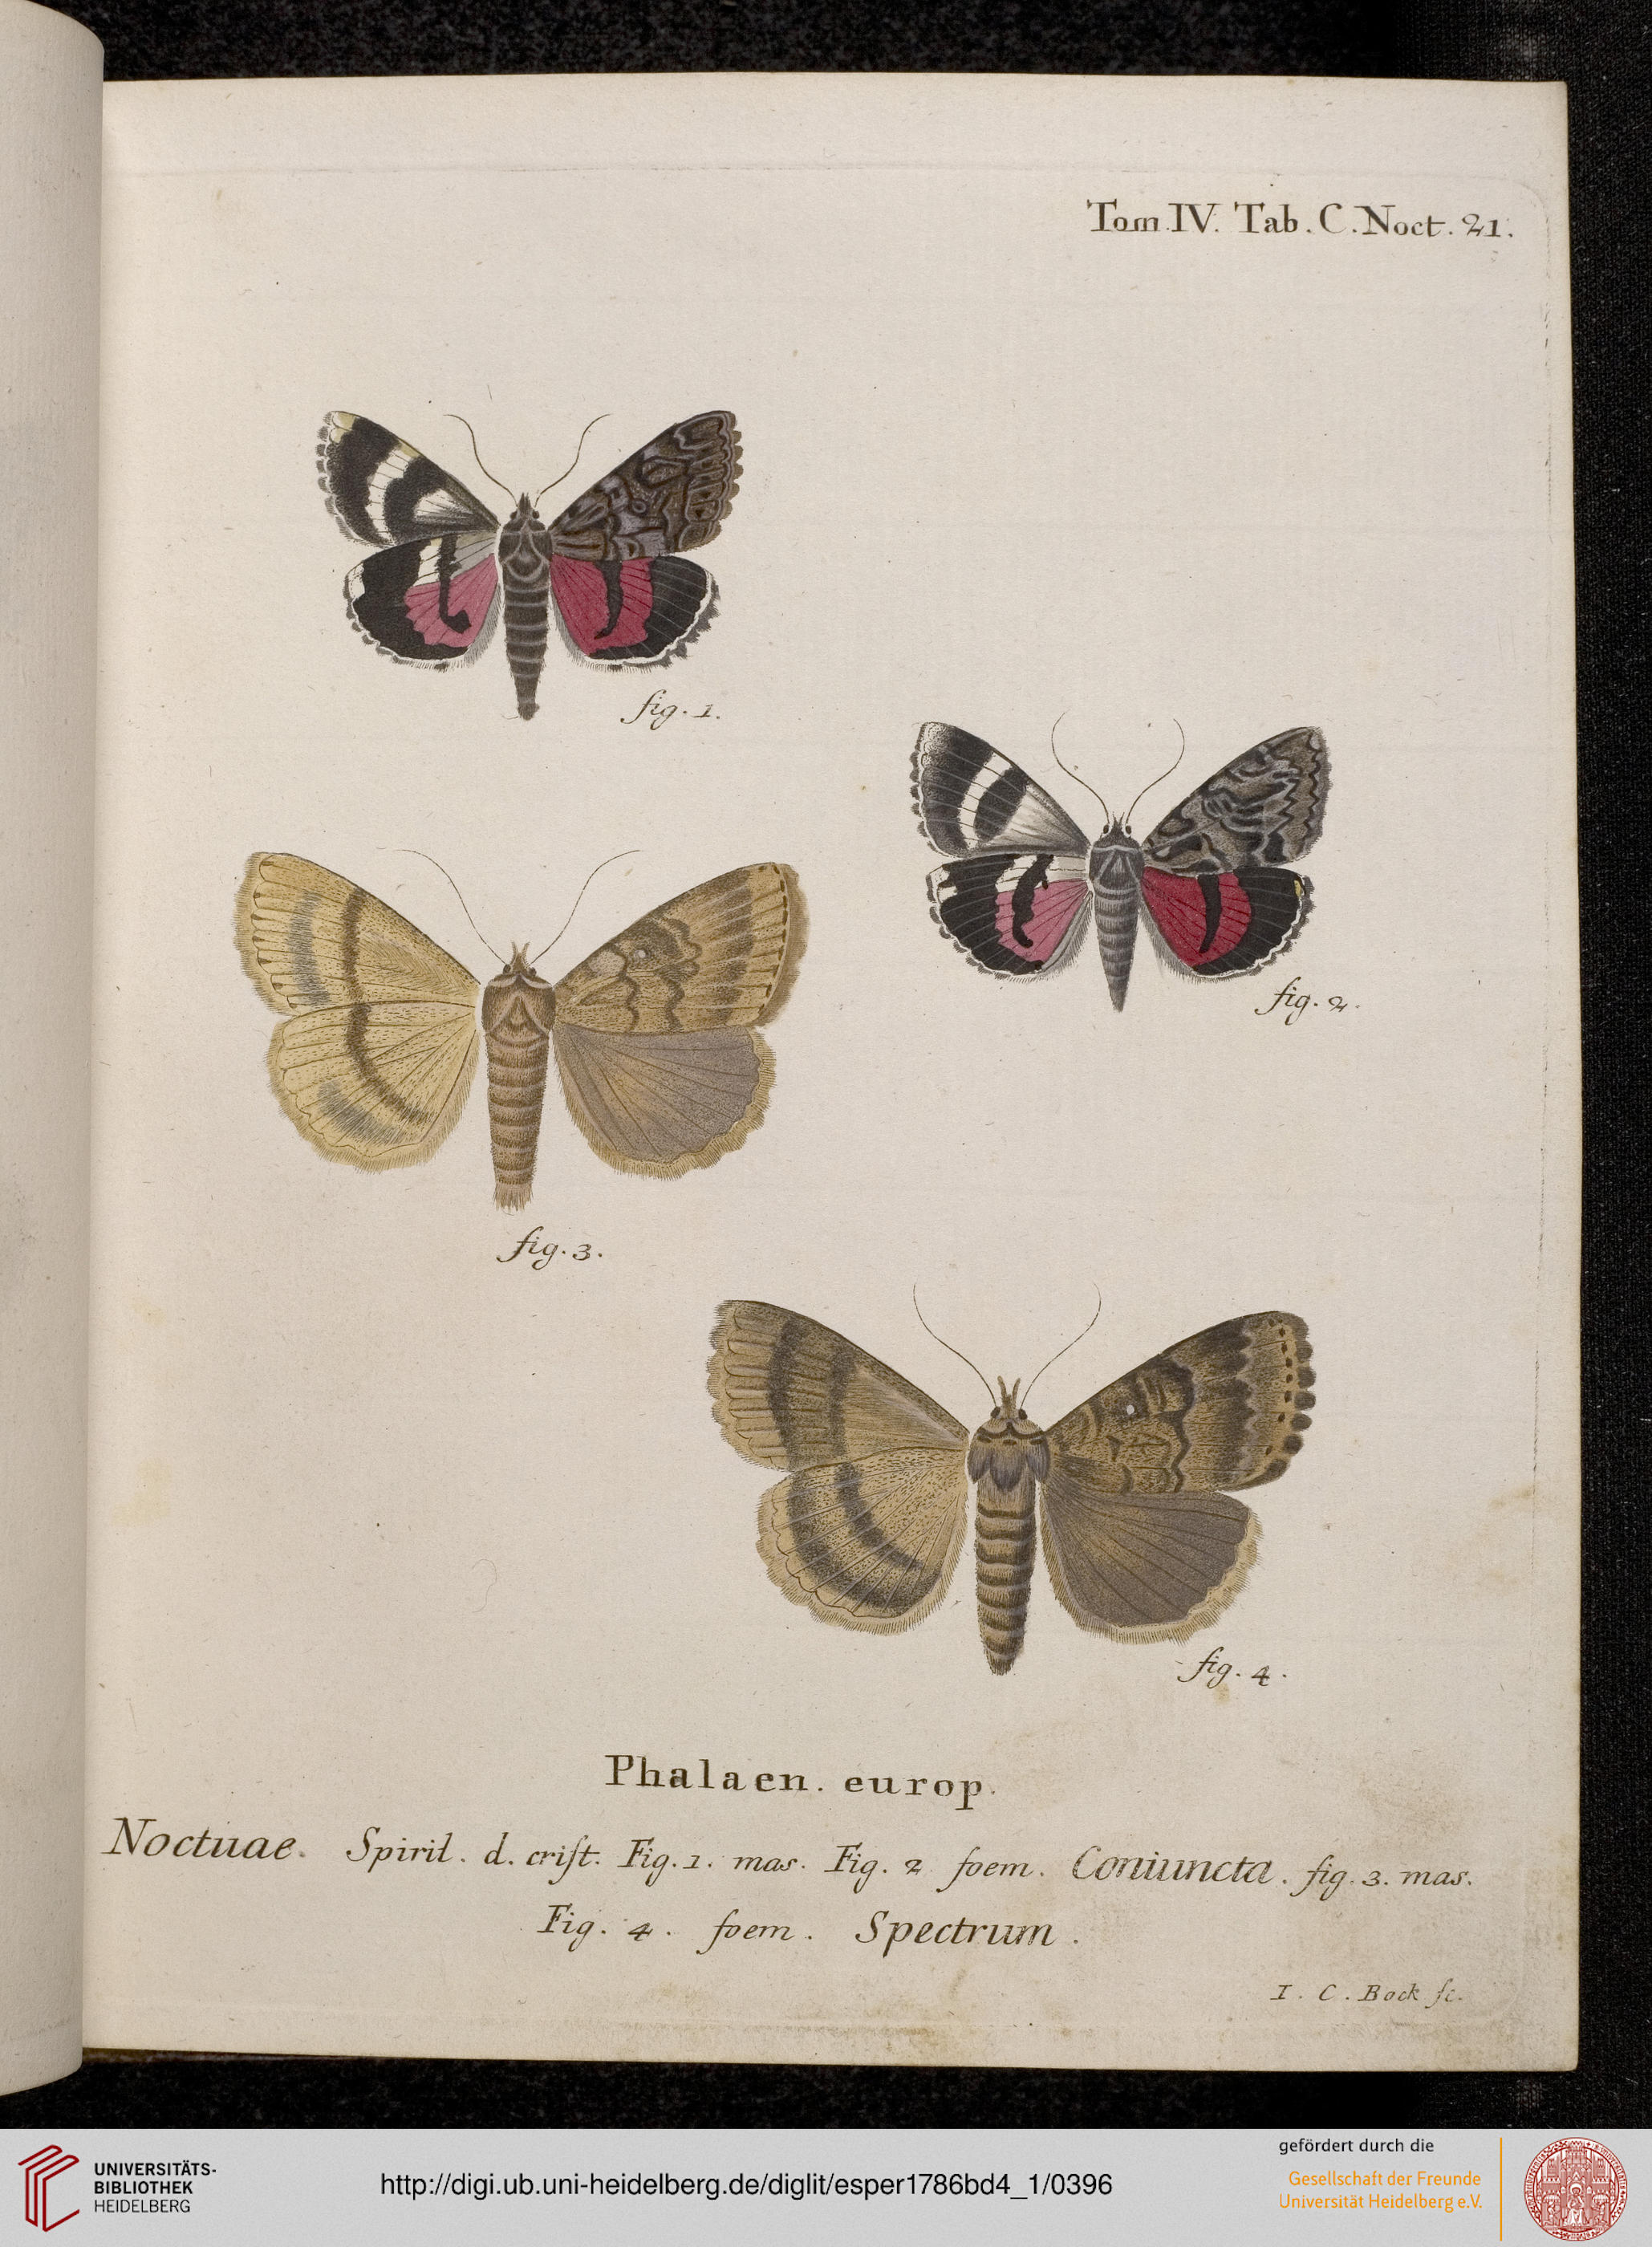 Tom. IV. Tab. C. Noct. 21.
fig. 1.
fig. 2.
fig. 3.
fig. 4.
Phalaen. europ.
Noctuae. Spiril. d. criſt. Fig. 1. mas. Fig. 2 foem. Coniuncta. fig. 3. mas.
Fig. 4. foem. Spectrum.
I. C. Bock ſc.
UNIVERSITÄTS-
BIBLIOTHEK
HEIDELBERG
http://digi.ub.uni-heidelberg.de/diglit/esper1786bd4_1/0396
gefördert durch die
Gesellschaft der Freunde
Universität Heidelberg e.V.